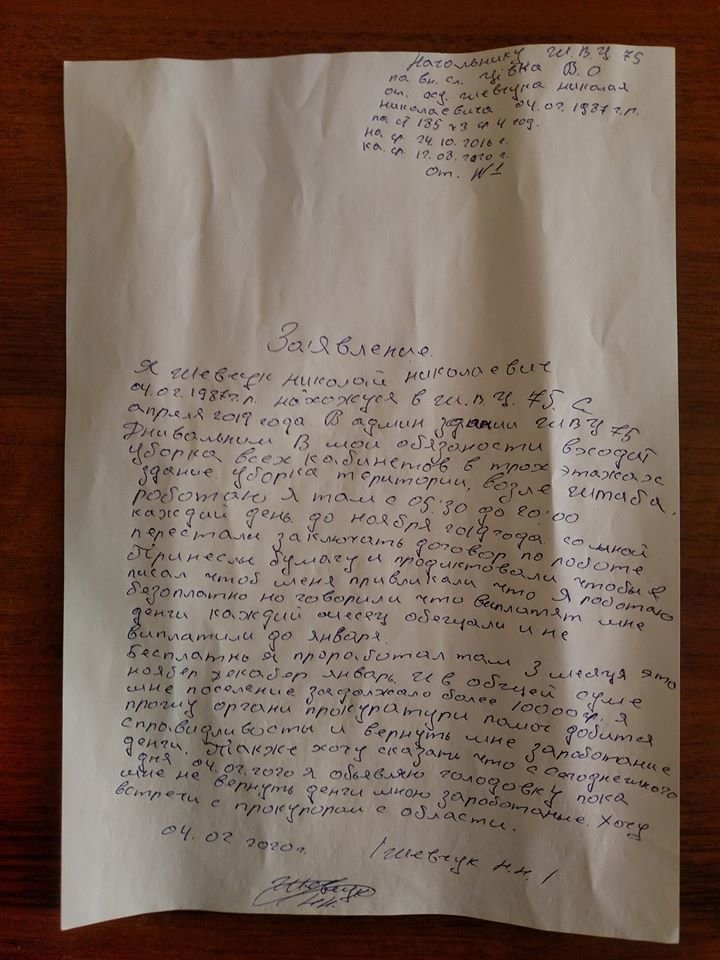 Начольнику Ш.В.Ц 75
па вн. сл. Цівка В.О
от. осу. Шевчука Николая
Николаевича 04.02.1987 г.р.
па ст 185 ч3 ср 4 год.
на. ср. 24.10.2016 г.
ка. ср. 12.08.2020 г.
От. №1
Заявление.
Я Шевчук Николай Николаевич
04.02.1987г.р. нахожуся в Ш.В.Ц. 75. С
апреля 2019 года. В админ здании ШВЦ 75
Днивальним В мои обязаности входат
уборка всех кабинетов в трох этажах
здание. уборка територии, возле штаба.
роботаю я там с 05:30 до 20:00
каждий день. до ноября 2019 года со мной
перестали заключать договор по роботе
Принесль бумагу и продиктовали чтобы я
писал чтоб меня привликали что я роботаю
безоплатно но говорили что виплатят мне
денги каждий месец обещали и не
виплатили до января.
Бесплатно я проработал там 3 месяця это
ноябер декабер январь. И в общей суме
мне поселение задолжало более 10000 г. я
прошу органи прокуратури памоч добится
справидливости и вернуть мне заработание
денги. Также хочу сказать что с сегоднешнего
дня 04.02.2020 я обьявляю голодовку пока
мне не вернуть денги мною заработание. Хочу
встречи с прокурором с области.
04.02 2020г. /Шевчук Н.Н./
Шевчук
Н.Н.